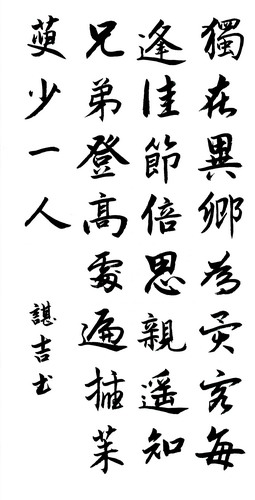 獨在異鄉為异客每
逢佳節倍思親遥知
兄弟登高處遍插茱
萸少一人
諶吉书